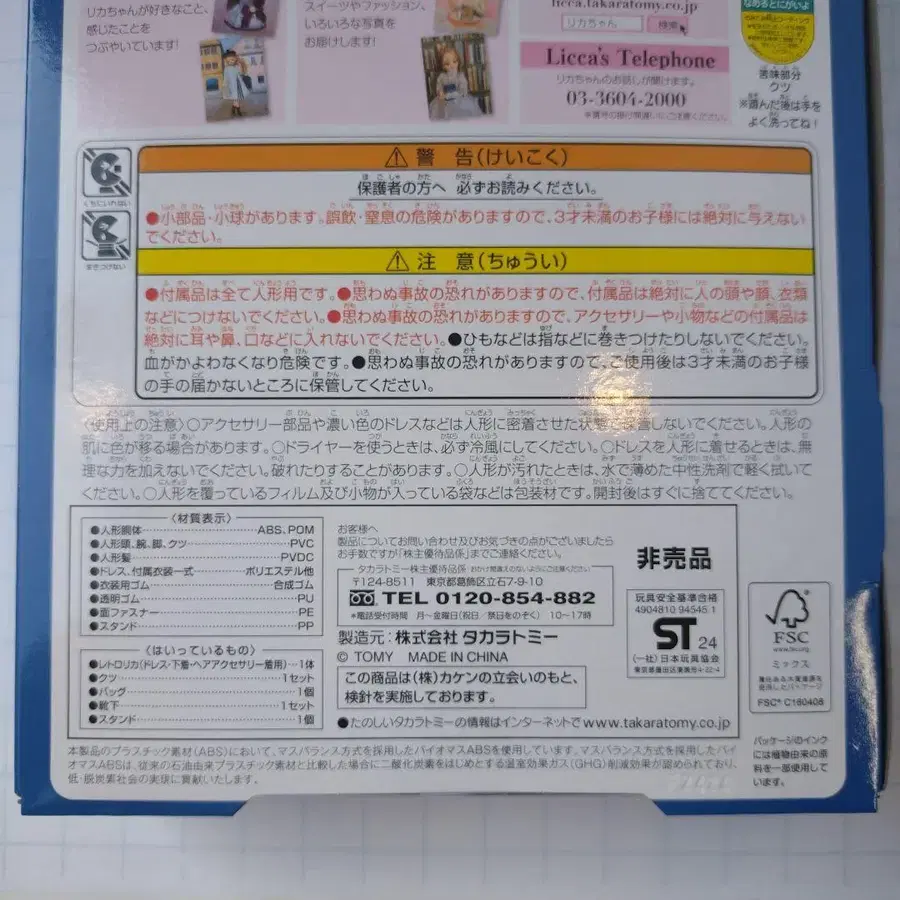 リカちゃんが好きなこと、
感じたことを
つぶやいています!
スイーツやファッション、
いろいろな写真を
お届けします!
licca.takaratomy.co.jp
リカちゃん
検索
Licca's Telephone
リカちゃんのお話しが聞けます。
03-3604-2000
苦味部分
クツ
※遊んだ後は手を
よく洗ってね!
くちにいれない
まきつけない
⚠警 告(けいこく)
保護者の方へ 必ずお読みください。
●小部品・小球があります。誤飲・窒息の危険がありますので、3才未満のお子様には絶対に与えない
でください。
⚠注 意(ちゅうい)
●付属品は全て人形用です。●思わぬ事故の恐れがありますので、付属品は絶対に人の頭や顔、衣類
などにつけないでください。●思わぬ事故の恐れがありますので、アクセサリーや小物などの付属品は
絶対に耳や鼻、口などに入れないでください。●ひもなどは指などに巻きつけたりしないでください。
血がかよわなくなり危険です。●思わぬ事故の恐れがありますので、ご使用後は3才未満のお子様
の手の届かないところに保管してください。
〈使用上の注意〉○アクセサリー部品や濃い色のドレスなどは人形に密着させた状態で保管しないでください。人形の
肌に色が移る場合があります。○ドライヤーを使うときは、必ず冷風にしてください。○ドレスを人形に着せるときは、無
理な力を加えないでください。破れたりすることがあります。○人形が汚れたときは、水で薄めた中性洗剤で軽く拭いて
ください。○人形を覆っているフィルム及び小物が入っている袋などは包装材です。開封後はすぐに捨ててください。
〈材質表示〉
●人形胴体 ABS、POM
●人形頭、腕、脚、クツ PVC
●人形髪 PVDC
●ドレス、付属衣装一式 ポリエステル他
●衣装用ゴム 合成ゴム
●透明ゴム PU
●面ファスナー PE
●スタンド PP
〈はいっているもの〉
●レトロリカ(ドレス・下着・ヘアアクセサリー着用) 1体
●クツ 1セット
●バッグ 1個
●靴下 1セット
●スタンド 1個
お客様へ
製品についてのお問い合わせ及びお気づきの点がございましたら
お手数ですが「株主優待品係」までご連絡ください。
タカラトミー株主優待品係 おかけ間違えのないようにご注意ください
〒124-8511 東京都葛飾区立石7-9-10
TEL 0120-854-882
*電話受付時間 月~金曜日(祝日/祭日をのぞく) 10~17時
製造元:株式会社 タカラトミー
© TOMY MADE IN CHINA
この商品は(株)カケンの立会いのもと、
検針を実施しております。
●たのしいタカラトミーの情報はインターネットで www.takaratomy.co.jp
非売品
玩具安全基準合格
4904810 94545 1
ST 24
(一社)日本玩具協会
東京都墨田区東駒形4-22-4
FSC
www.fsc.org
ミックス
責任ある木質資源を
使用したパッケージ
FSC® C160408
パッケージのインク
には植物由来の原
料を一部使用して
います。
本製品のプラスチック素材(ABS)において、マスバランス方式を採用したバイオマスABSを使用しています。マスバランス方式を採用したバイ
オマスABSは、従来の石油由来プラスチック素材と比較した場合に二酸化炭素をはじめとする温室効果ガス(GHG)削減効果が認められており、
低・脱炭素社会の実現に貢献いたします。